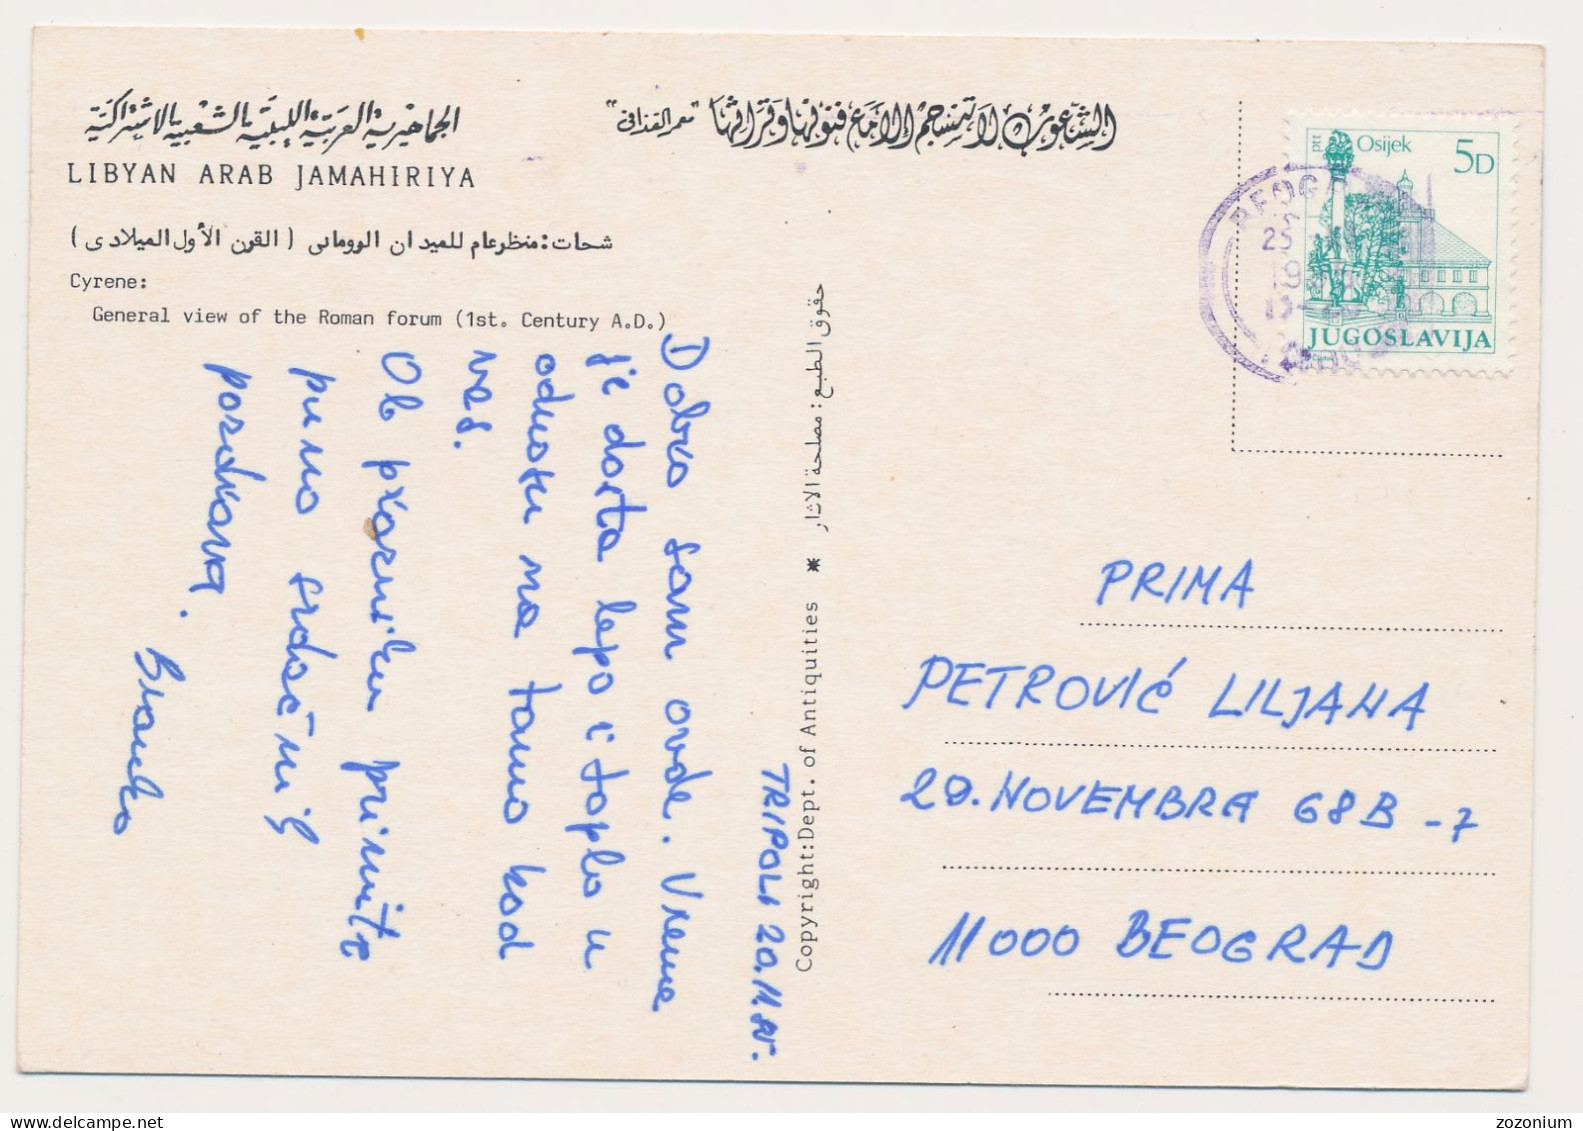 الجماهيرية العربية الليبية الشعبية الاشتراكية
LIBYAN ARAB JAMAHIRIYA
الشعوب لا تنسجم إلا مع فنونها وتراثها "معمر القذافي"
شحات: منظر عام للميدان الروماني (القرن الأول الميلادي)
Cyrene:
General view of the Roman forum (1st. Century A.D.)
ptt Osijek 5D
JUGOSLAVIJA
BEOGR
25
19
Dobro sam ovde. Vreme
je dosta lepo i toplo u
odnosu na tamo kod
vas.
Ob prazniku primite
puno srdačnih
pozdrava.
Branko
TRIPOLI 20.11.
Copyright: Dept. of Antiquities * حقوق الطبع: مصلحة الاثار
PRIMA
PETROVIĆ LILJANA
29. NOVEMBRA 68B -7
11000 BEOGRAD
www.delcampe.net
zozonium